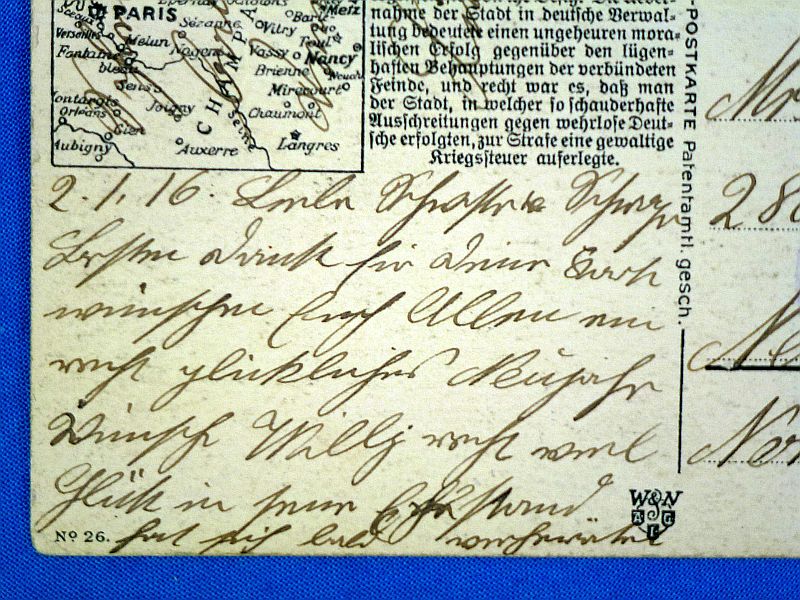 PARIS
Sézanne
Vitry
Toul
Metz
Nancy
Versailles
Melun
Nogent
Vassy
Brienne
Mirecourt
Sens
Joigny
Chaumont
Orléans
Gien
Aubigny
Auxerre
Seine
Langres
nahme der Stadt in deutsche Verwal-
tung bedeutete einen ungeheuren mora-
lischen Erfolg gegenüber den lügen-
haften Behauptungen der verbündeten
Feinde, und recht war es, daß man
der Stadt, in welcher so schauderhafte
Ausschreitungen gegen wehrlose Deut-
sche erfolgten, zur Strafe eine gewaltige
Kriegssteuer auferlegte.
-POSTKARTE Patentamtl. gesch.
2.1.16. Liebe Schwester & Schwager
Besten Dank für Deine
wünschen Euch Allen ein
recht glückliches Neujahr
Wünsche Willy recht viel
Glück in seine Ehestand
hat sich bald verheiratet
Nº 26.
W&N
Mr
28